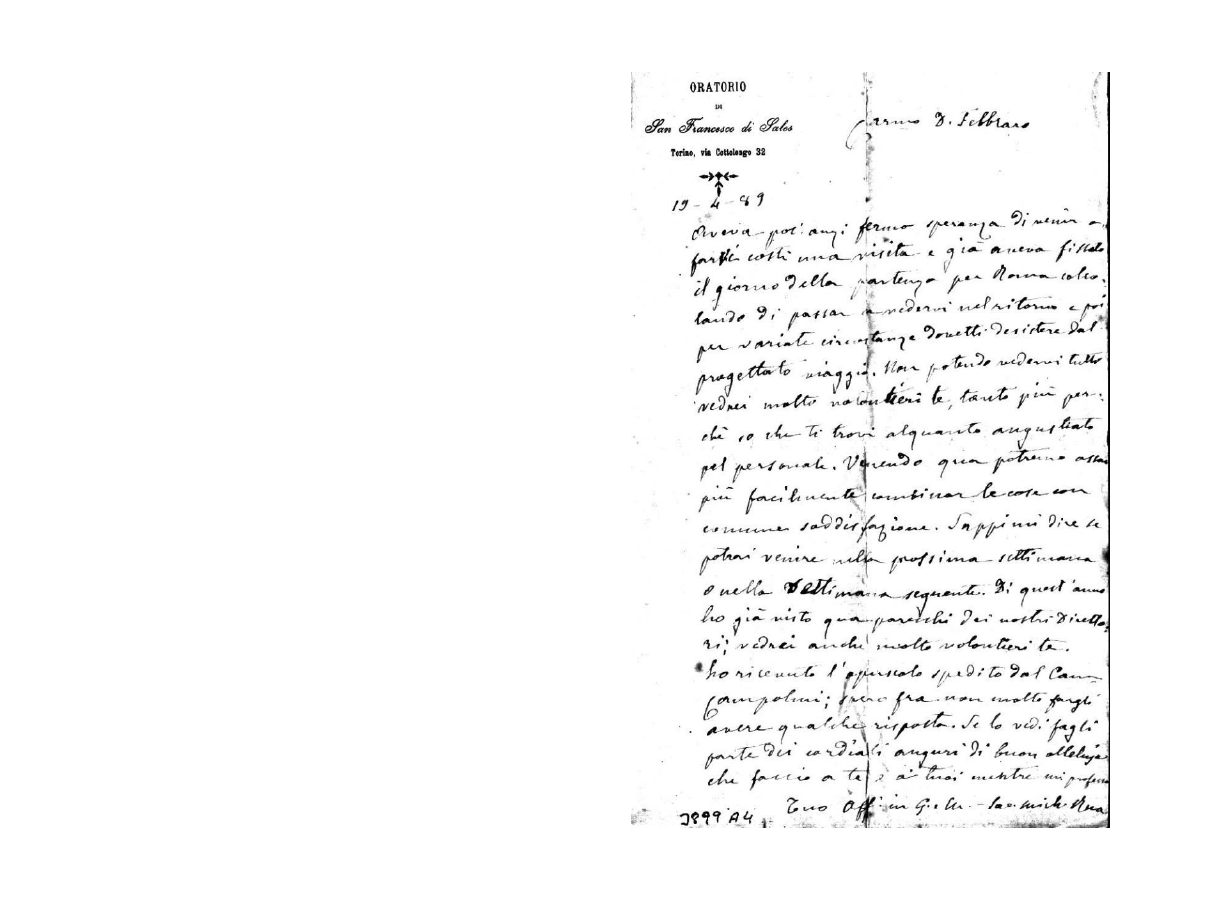 ORATORIO
DI
San Francesco di Sales
Torino, via Cottolengo 32
Carmo D. Febbraro
19-4-89
Aveva poc'anzi fermo speranza di venir a
farti costì una visita e già aveva fissato
il giorno della partenza per Roma calco-
lando di passar a vedervi nel ritorno e poi
per variate circostanze dovetti desistere dal
progettato viaggio. Non potendo vedervi tutto
vedrei molto volontieri te, tanto più per-
chè so che ti trovi alquanto angustiato
pel personale. Venendo qua potremo assai
più facilmente combinar le cose con
comune soddisfazione. Sappimi dire se
potrai venire nella prossima settimana
o nella settimana seguente. Di quest'anno
ho già visto qua parecchi dei nostri Diretto-
ri; vedrei anche molto volontieri te.
Ho ricevuto l'opuscolo spedito dal Can.
Campolini; spero fra non molto fargli
avere qualche risposta. Se lo vedi fagli
parte dei cordiali auguri di buon alleluja
che faccio a te e a' tuoi mentre mi professo
Tuo Aff. in G. e M. - Sac. Michele Rua
J899 A4